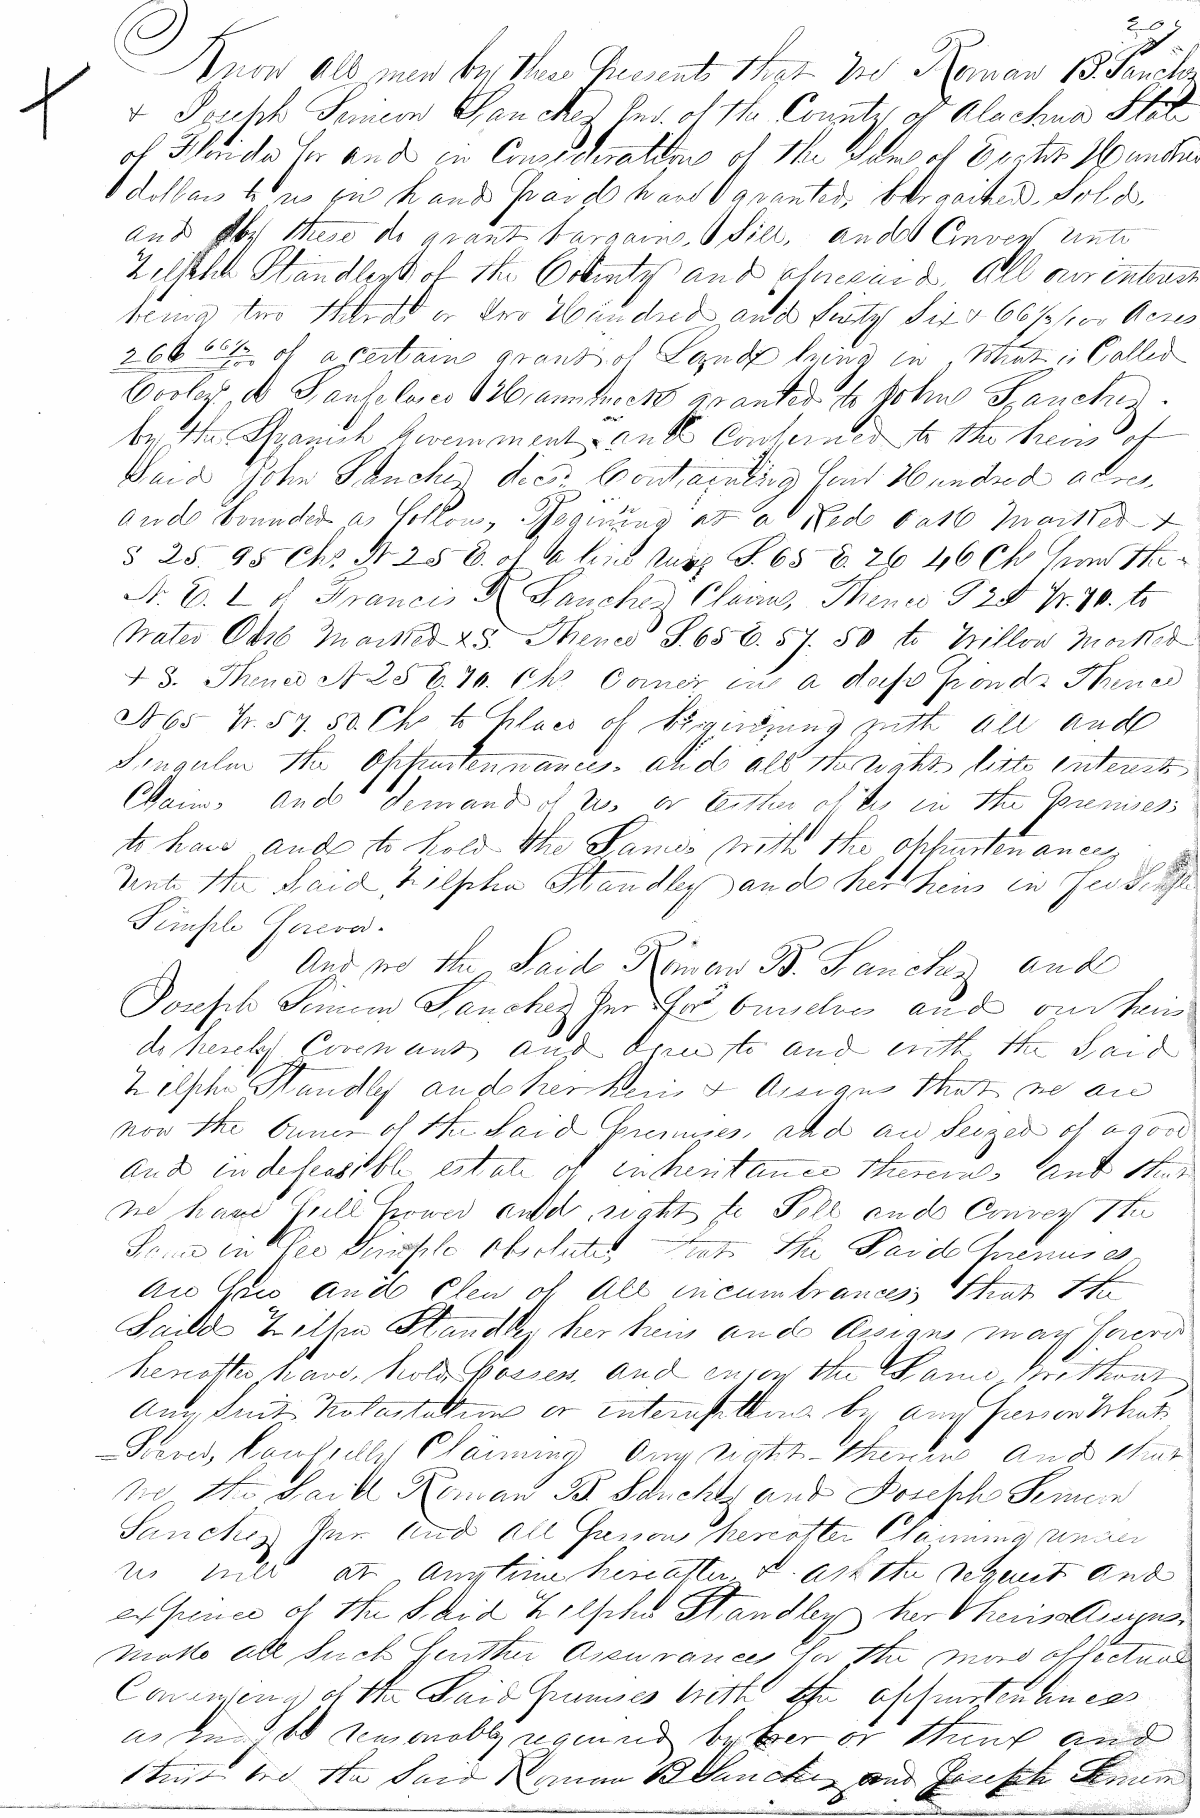 Know all men by these Presents that we Roman B. Sanchez
& Joseph Simeon Sanchez Jnr. of the County of Alachua State
of Florida for and in Consideration of the Sum of Hundred
dollars to us in hand paid have granted, bargained, Sold,
and by these do grant bargain, Sell, and Convey unto
Zilpha Standley of the County and aforesaid, all our interest
being two thirds or two Hundred and Sixty Six & 66⅔/100 Acres
266 66⅔/100 of a certain grant of Land lying in, what is Called
Hammock granted to John Sanchez.
by the Spanish Government, and Confirmed to the heirs of
Said John Sanchez decd. Containing four Hundred acres,
and bounded as follows, Begining at a Red Oak Marked X
S 25. 95 Chs. N 25 E. of a line S. 65 E. 26 46 Ch from the
N. E. L of Francis R Sanchez Claim, Thence S 25 W. 70. to
Water Oak Marked X S. Thence S. 65 E. 57. 50 to Willow Marked
+ S. Thence N 25 E. 70. Chs Corner in a deep pond. Thence
N 65 W. 57. 50. Chs to place of beginning with all and
Singular the appurtennances. and all the right title interest
Claim, and demand of Us, or Either of us in the premises;
to have and to hold the Same, with the appurtenances
Unto the Said, Zilpha Standley and her heirs in fee Simple
Simple forever.
And we the Said Roman B. Sanchez and
Joseph Simeon Sanchez Jnr for Ourselves and our heirs
do hereby Covenant, and agree to and with the Said
Zilpha Standley and her heirs & Assigns that we are
now the owner of the Said premises, and are Seized of a good
and indefeasible estate of inheritance therein, and that
we have full power and right to Sell and Convey the
Same in fee Simple absolute, that the Said premises
are free and clear of all incumbrances; that the
Said Zilpha Standley her heirs and Assigns may forever
hereafter have, hold, possess, and enjoy the Same, without
any Suit Molastation or interuption by any person What=
=Soever, lawfully Claiming any right therein and that
we the Said Roman B. Sanchez and Joseph Simeon
Sanchez Jnr. and all persons hereafter Claiming under
us will at anytime hereafter, & at the request and
expence of the Said Zilpha Standley her heirs & Assigns.
make all Such further assurances for the more effectual
Conveying of the Said premises with the appurtenances
as may be reasonably required by her or them and
that we the Said Roman B Sanchez and Joseph Simeon